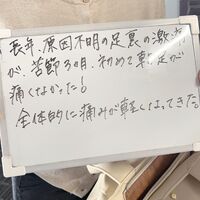 長年、原因不明の足裏の激痛
が、苦節3ヶ月、初めて朝足が
痛くなかった!
全体的に痛みが軽くなってきた。